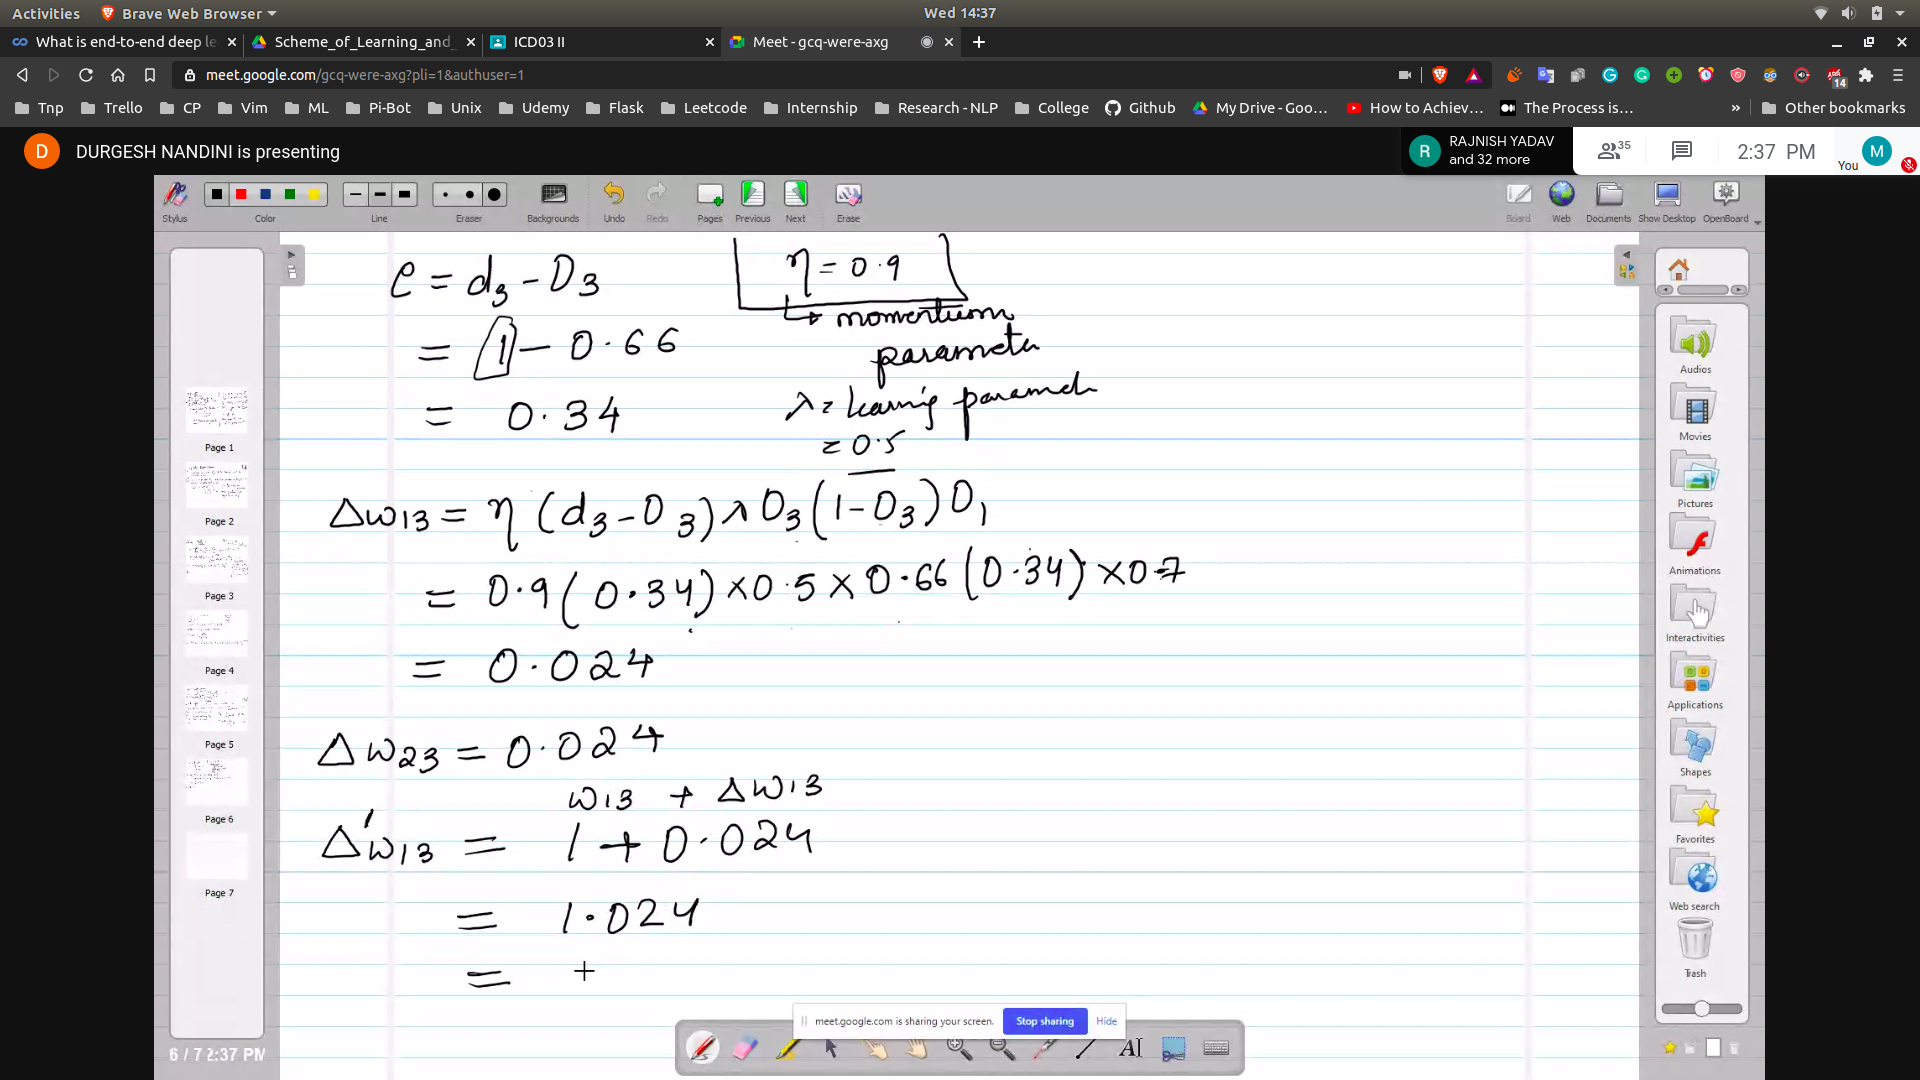 Activities Brave Web Browser Wed 14:37
What is end-to-end deep le Scheme_of_Learning_and_ ICD03 II Meet - gcq-were-axg
meet.google.com/gcq-were-axg?pli=1&authuser=1 14
Tnp Trello CP Vim ML Pi-Bot Unix Udemy Flask Leetcode Internship Research - NLP College Github My Drive - Goo... How to Achiev... The Process is... » Other bookmarks
D DURGESH NANDINI is presenting
R RAJNISH YADAV
and 32 more
35 2:37 PM You M
Stylus Color Line Eraser Backgrounds Undo Redo Pages Previous Next Erase Board Web Documents Show Desktop OpenBoard
e = d3 - D3
η = 0.9
momentum
parameter
= 1 - 0.66
= 0.34
λ = learning parameter
= 0.5
Δw13 = η (d3 - O3) λ O3 (1 - O3) O1
= 0.9 (0.34) × 0.5 × 0.66 (0.34) × 0.7
= 0.024
Δw23 = 0.024
w13 + Δw13
Δ'w13 = 1 + 0.024
= 1.024
=
Page 1
Page 2
Page 3
Page 4
Page 5
Page 6
Page 7
6 / 7 2:37 PM
Audios
Movies
Pictures
Animations
Interactivities
Applications
Shapes
Favorites
Web search
Trash
meet.google.com is sharing your screen. Stop sharing Hide
AI